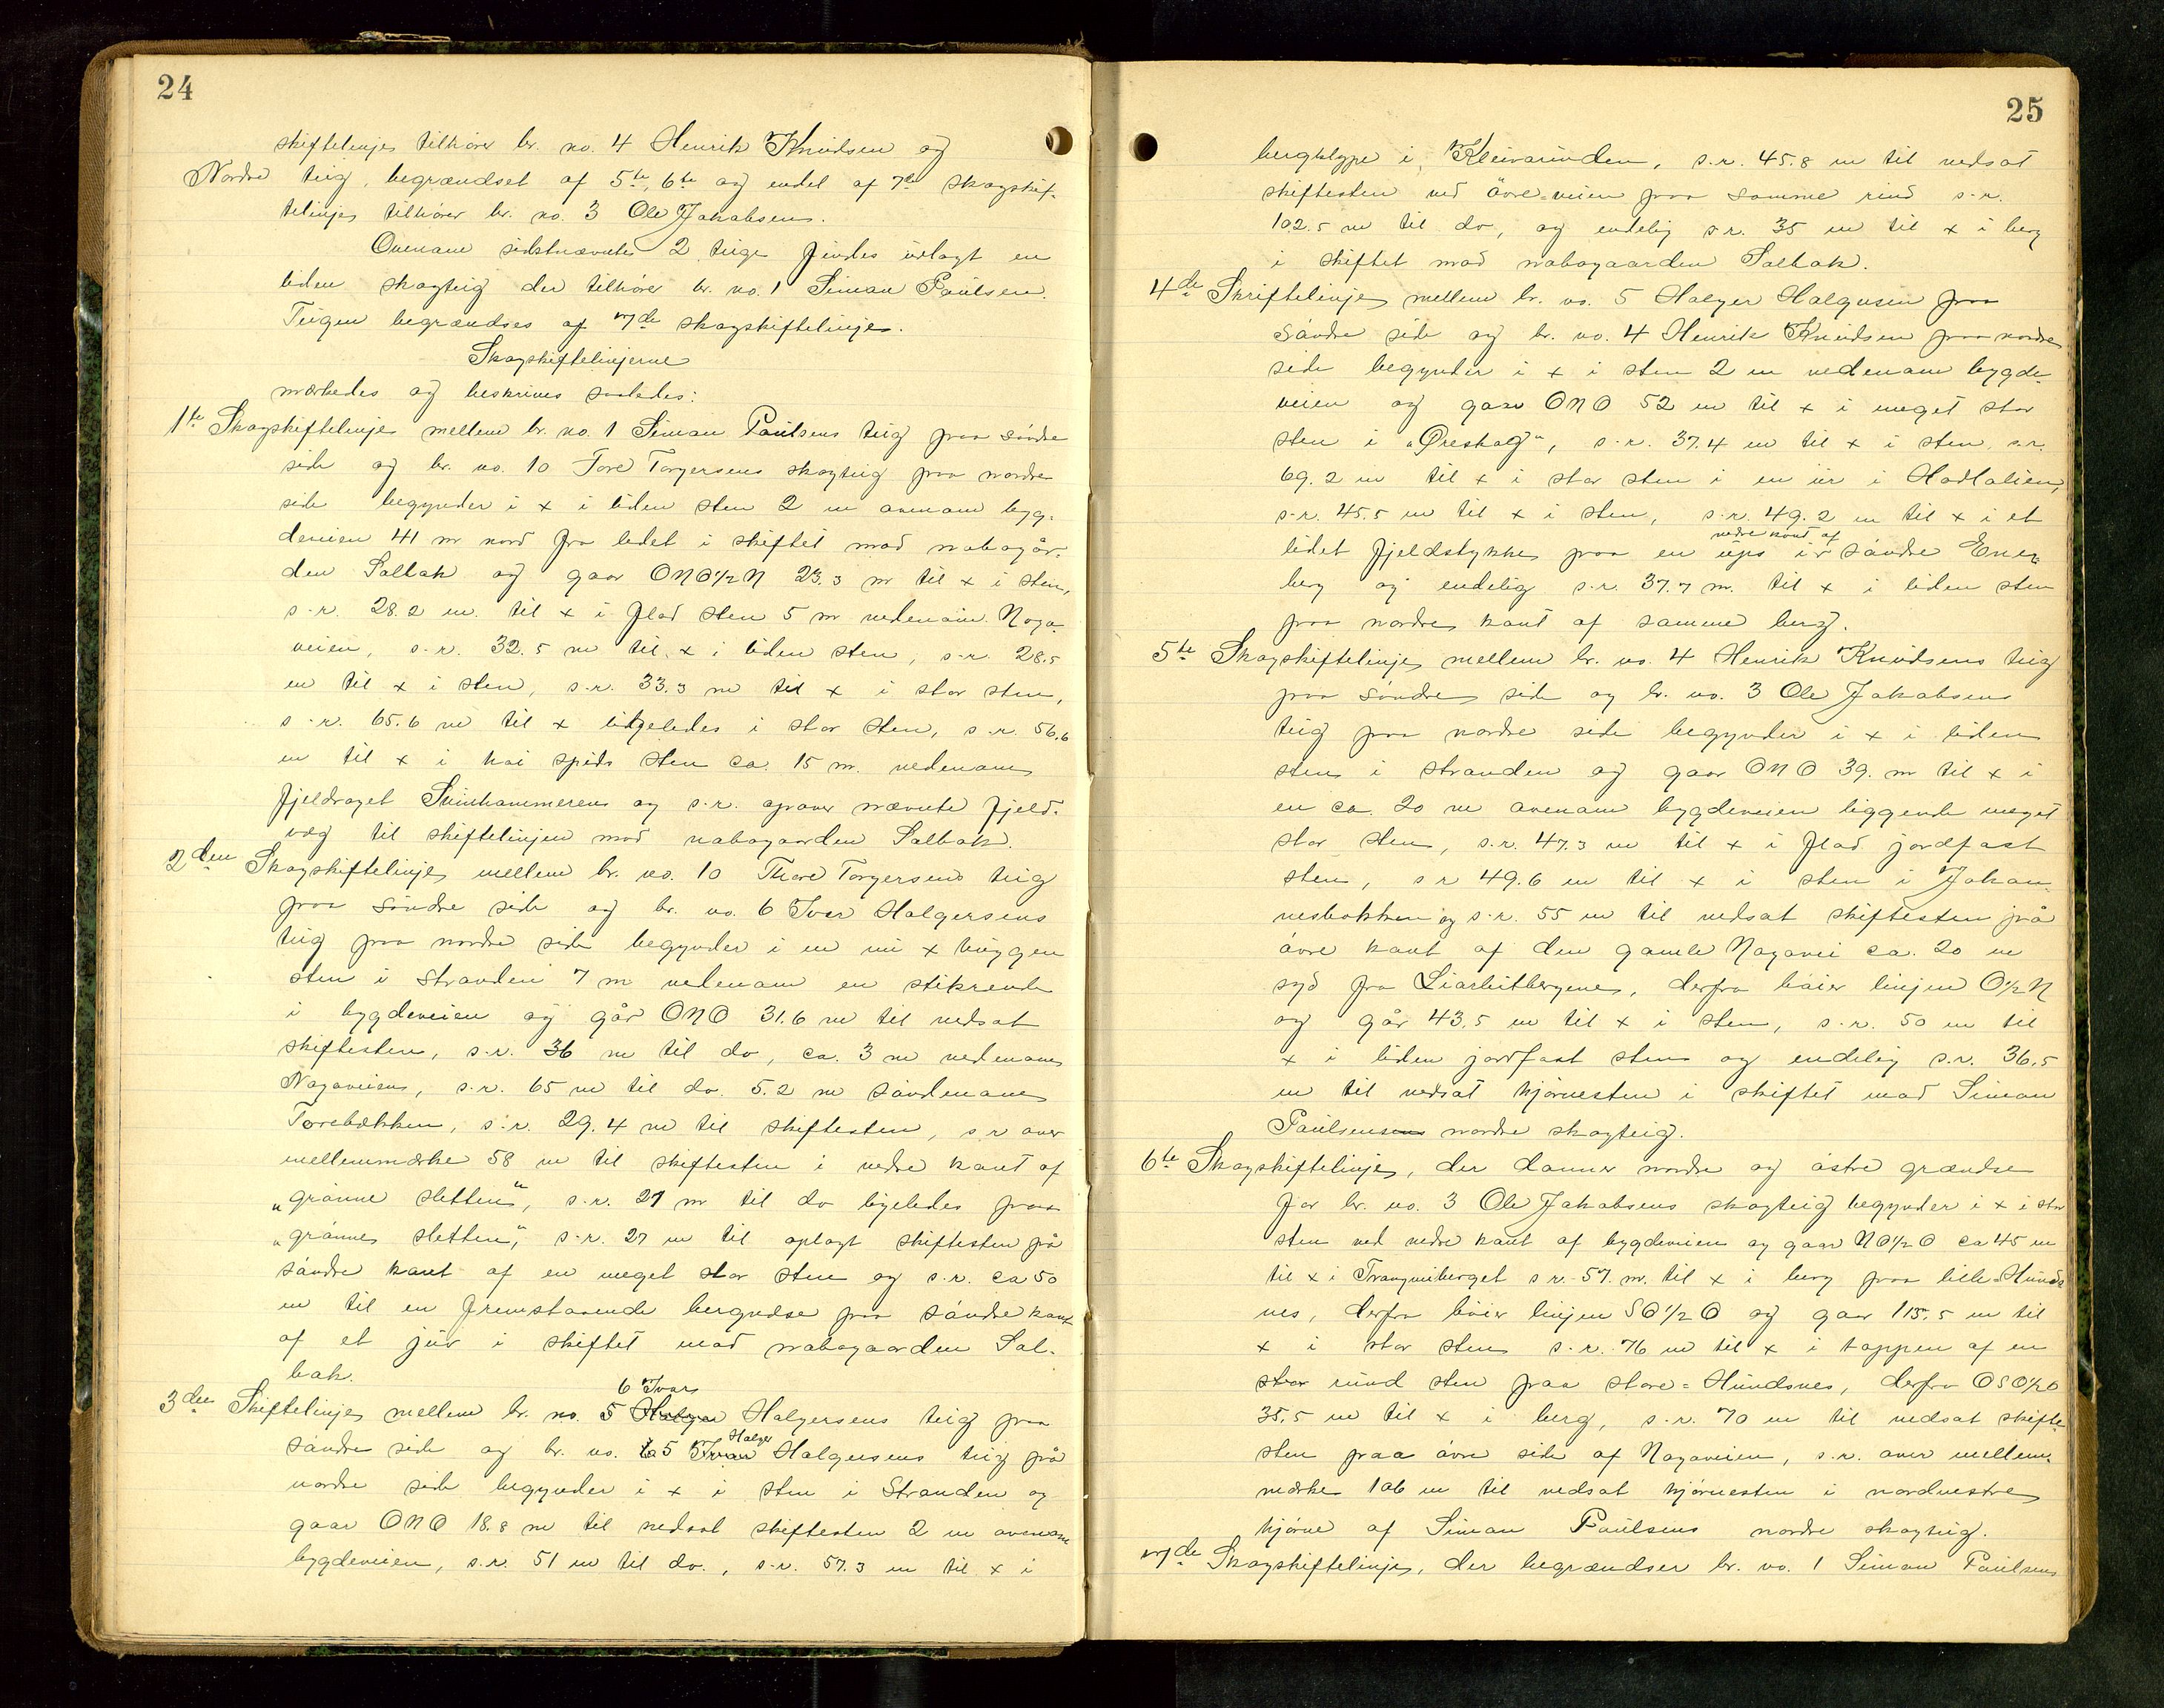 24
skiftelinje tilhører br. no. 4 Henrik Knudsen og
Nordre teig, begrændset af 5te, 6te og endel af 7de skogskif-
telinje tilhører br. no. 3 Ole Jakobsen.
Ovenom sidstnævnte 2 teige findes utlagt en
liden skogteig der tilhører br. no. 1 Simon Paulsen.
Teigen begrændses af 7de skogskiftelinje.
Skogskiftelinjerne
mærkedes og beskrives saaledes:
1te Skogskiftelinje mellem br. no. 1 Simon Paulsens teig paa søndre
side og br. no. 10 Tore Torgersens skogteig paa nordre
side begynder i x i liden sten 2 m ovenom byg-
deveien 41 m nord fra ledet i skiftet mod nabogår-
den Salbak og gaar ONO1/2N 23.3 m til x i sten,
s.r. 28.2 m. til x i flad sten 5 m nedenom Noga-
veien, s.r. 32.5 m til x i liden sten, s.r. 28.5
m til x i sten, s.r. 33.3 m til x i stor sten,
s.r. 65.6 m til x ligeledes i stor sten, s.r. 56.6
m til x i høi spids sten ca. 15 m. nedenom
fjeldraget Svinhammeren og s.r. opover nævnte fjeld-
væg til skiftelinjen mod nabogaarden Salbak.
2den Skogskiftelinje mellem br. no. 10 Thore Torgersens teig
paa søndre side og br. no. 6 Ivar Halgersens
teig paa nordre side begynder i en ni x huggen
sten i stranden 7 m nedenom en stikrende
i bygdeveien og går ONO 31.6 m til nedsat
skiftesten, s.r. 36 m til do, ca. 3 m nedenom
Nogaveien, s.r. 65 m til do. 5.2 m søndenom
Torebækken, s.r. 29.4 m til skiftesten, s.r over
mellemmærke 58 m til skiftesten i nedre kant af
„grønne sletten“, s.r. 27 m til do ligeledes paa
„grønne sletten“, s.r. 27 m til oplagt skiftesten på
søndre kant af en meget stor sten og s.r. ca 50
m til en fremstaaende bergnase paa søndre kant
af et juv i skiftet mod nabogaarden Sal-
bak.
6 Ivars
3die Skiftelinje mellem br. no. 5 Halger Halgersens teig paa
Halger
søndre side og br. no. 6 5 Ivar Halgersens teig på
nordre side begynder i x i sten i Stranden og
gaar ONO 18.8 m til nedsat skiftesten 2 m ovenom
bygdeveien, s.r. 51 m til do., s.r. 57.3 m til x i
25
bergklype i Kleivarinden, s.r. 45.8 m til nedsat
skiftesten ved øvre veien paa samme rind s.r.
102.5 m til do, og endelig s.r. 35 m til x i berg
i skiftet mod nabogaarden Salbak.
4de Skriftelinje mellem br. no. 5 Halger Halgersen paa
søndre side og br. no. 4 Henrik Knudsen paa nordre
side begynder i x i sten 2 m nedenom bygde-
veien og gaar ONO 52 m til x i meget stor
sten i „Øreshag“, s.r. 37.4 m til x i sten, s.r.
69.2 m til x i stor sten i en ur i Hadlalien,
s.r. 45.5 m til x i sten, s.r. 49.2 m til x i et
nedre kant af
lidet fjeldstykke paa en ups i søndre Ener-
berg og endelig s.r. 37.7 m. til x i liden sten
paa nordre kant af samme berg.
5te Skogskiftelinje mellem br. no. 4 Henrik Knudsens teig
paa søndre side og br. no. 3 Ole Jakobsens
teig paa nordre side begynder i x i liden
sten i stranden og gaar ONO 39. m til x i
en ca. 20 m ovenom bygdeveien liggende meget
stor sten, s.r. 47.3 m til x i flad jordfast
sten, s r 49.6 m til x i sten i Johan-
nesbakken og s.r. 55 m til nedsat skiftesten på
øvre kant af den gamle Nogavei ca. 20 m
syd fra Liarleitbergene, derfra bøier linjen O1/2N
og går 43.5 m til x i sten, s.r. 50 m til
x i liden jordfast sten og endelig s.r. 36.5
m til nedsat hjørnesten i skiftet mod Simon
Paulsens nordre skogteig.
6te Skogskiftelinje, der danner nordre og østre grændse
for br. no. 3 Ole Jakobsens skogteig begynder i x i stor
sten ved nedre kant af bygdeveien og gaar NO1/2O ca 45 m
til x i s r. 57. m. til x i berg paa lille-Hunds-
nes, derfra bøier linjen SO1/2O og gaar 115.5 m til
x i stor sten s.r. 76 m til x i toppen af en
stor rund sten paa store-Hundsnes, derfra OSO1/2O
35.5 m til x i berg, s.r. 70 m til nedsat skifte-
sten paa øvre side af Nogaveien, s.r. over mellem-
mærke 106 m til nedsat hjørnesten i nordvestre
hjørne af Simon Paulsens nordre skogteig.
7de Skogskiftelinje, der begrændser br. no. 1 Simon Paulsens